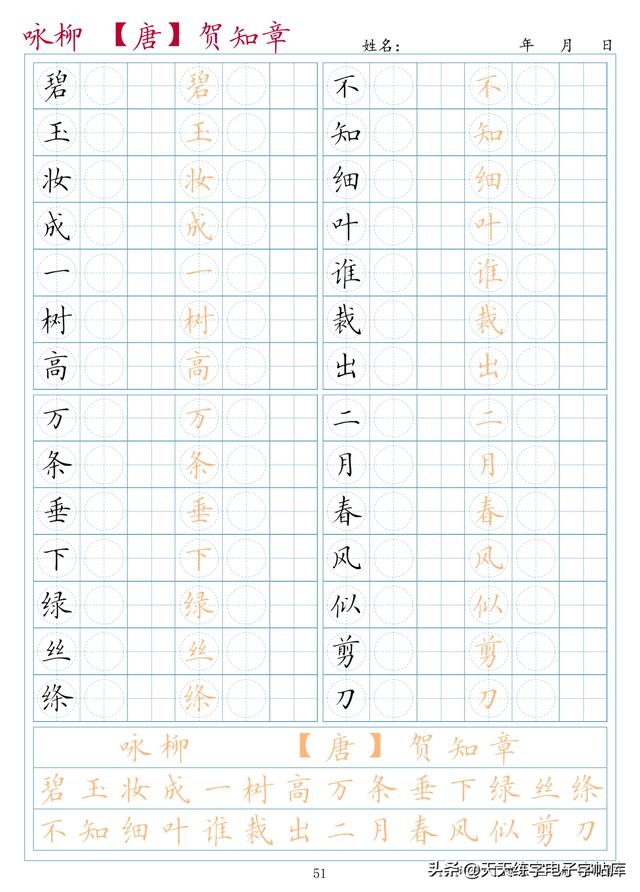 咏柳 【唐】贺知章
姓名： 年 月 日
碧玉妆成一树高
碧玉妆成一树高
不知细叶谁裁出
不知细叶谁裁出
万条垂下绿丝绦
万条垂下绿丝绦
二月春风似剪刀
二月春风似剪刀
咏柳 【唐】贺知章
碧玉妆成一树高万条垂下绿丝绦
不知细叶谁裁出二月春风似剪刀
51
头条@天天练字电子字帖库